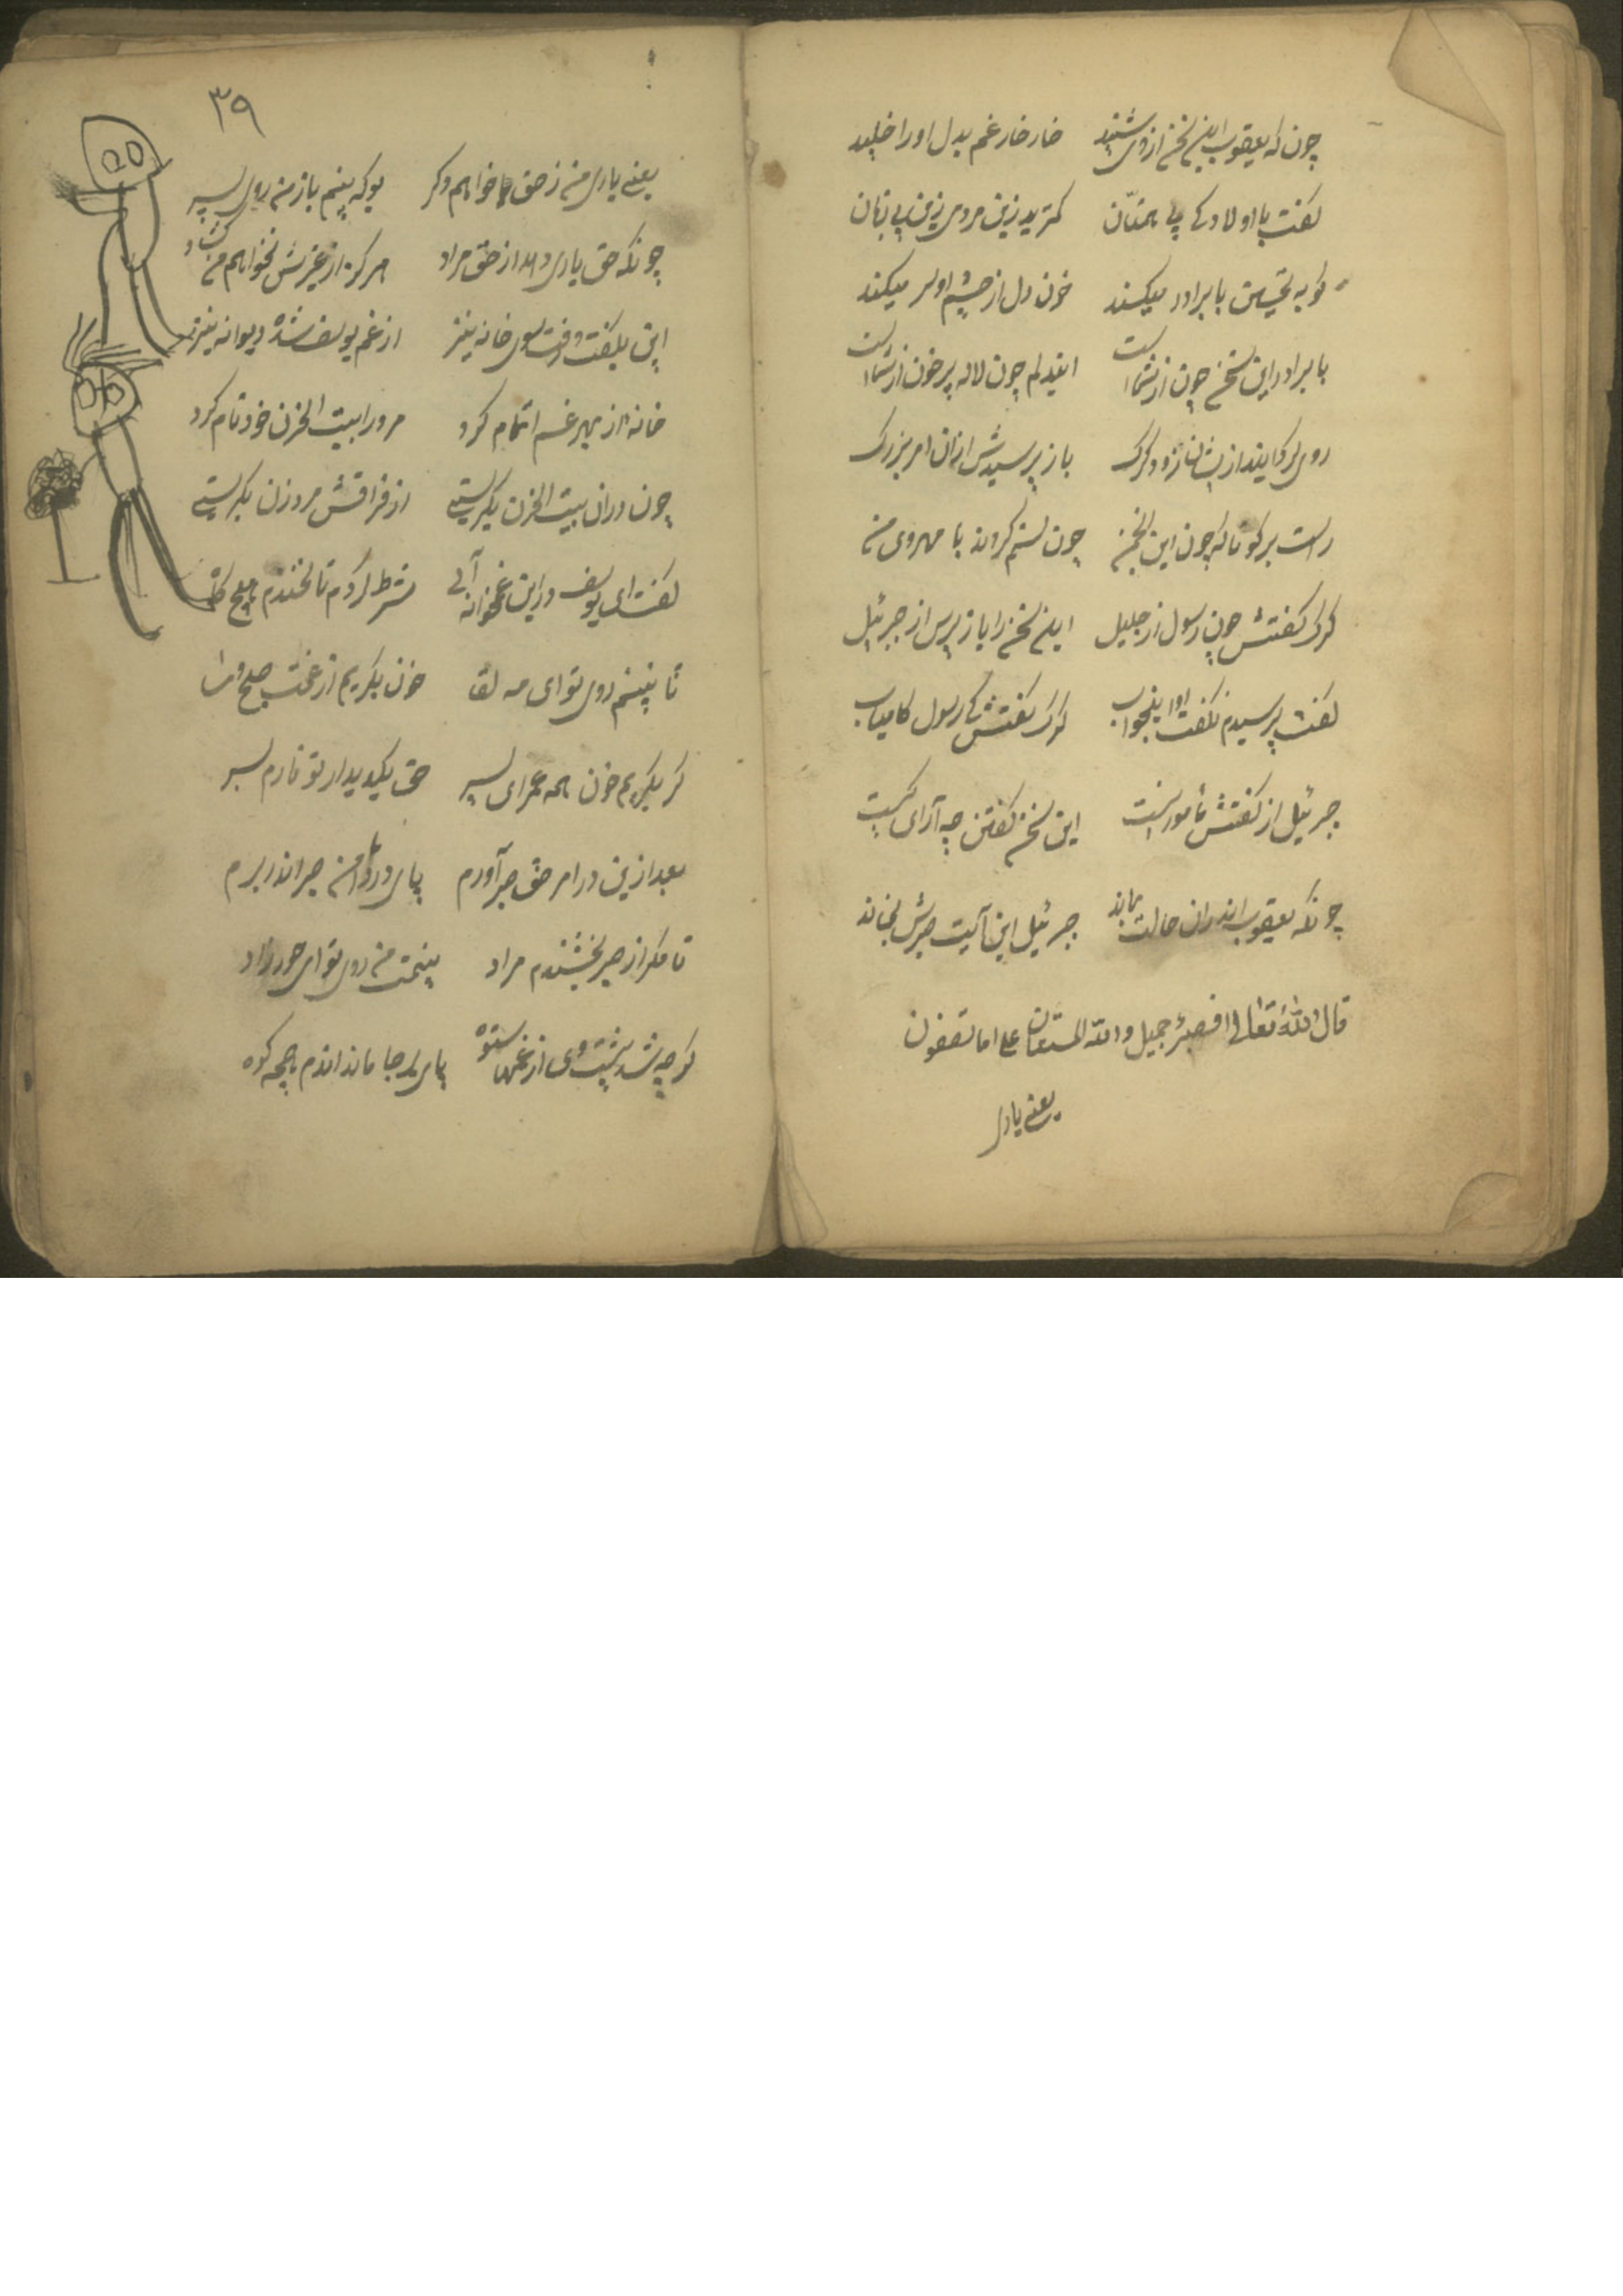 چون که یعقوب این سخن از وی شنید خار خار غم بدل او را خلید
گفت با اولاد کای بی همتان کمترید زین مردی زین بی زبان
کو به تحسین با برادر میکند خون دل از چشم او سر میکند
با برادر این سخن چون از شماست ایندلم چون لاله پر خون از شماست
روی کرد از ایشان زود و گرگ باز پرسیدش از ان امر بزرگ
راست بر گو تا که چون این انجمن چون ستم کردند با مهروی من
گرگ گفتش چون رسول از جلیل این سخن را باز پرس از جبرئیل
گفت پرسیدم نگفت او اینجواب گرگ گفتش کای رسول کامیاب
جبرئیل از گفتنش مامور نیست این سخن گفتن چه آرای کیست
چونکه یعقوب اندران حالت بماند جبرئیل این آیت صبرش بخواند
قال الله تعالی فصبر جمیل والله المستعان علی ما تصفون
یعنی یاری
۳۹
یعنی یاری من ز حق خواهم دگر بوکه بینم باز من روی پسر
چونکه حق یاری دهد از حق مراد هرگز از غیرش نخواهم من گشاد
این بگفت و رفت سوی خانه نیز از غم یوسف شده دیوانه نیز
خانه از بهر غم اتمام کرد مر ورا بیت الحزن خود نام کرد
چون دران بیت الحزن بگریستی از فراقش مرد و زن بگریستی
گفت ای یوسف در این غمخانه شرط کردم تا نخندم هیچ
تا بینم روی تو ای مه لقا خون بگریم از غمت صبح و مسا
گر بگریم خون همه عمر ای پسر حق یکدیدار تو نارم بسر
بعد ازین در امر حق صبر آورم پای در دامن صبر اندر برم
تا مگر از صبر بخشندم مراد بینمت من روی تو ای حورزاد
گرچه شد پشت وی از غمها ستوه پای بر جا ماند اندم همچه کوه